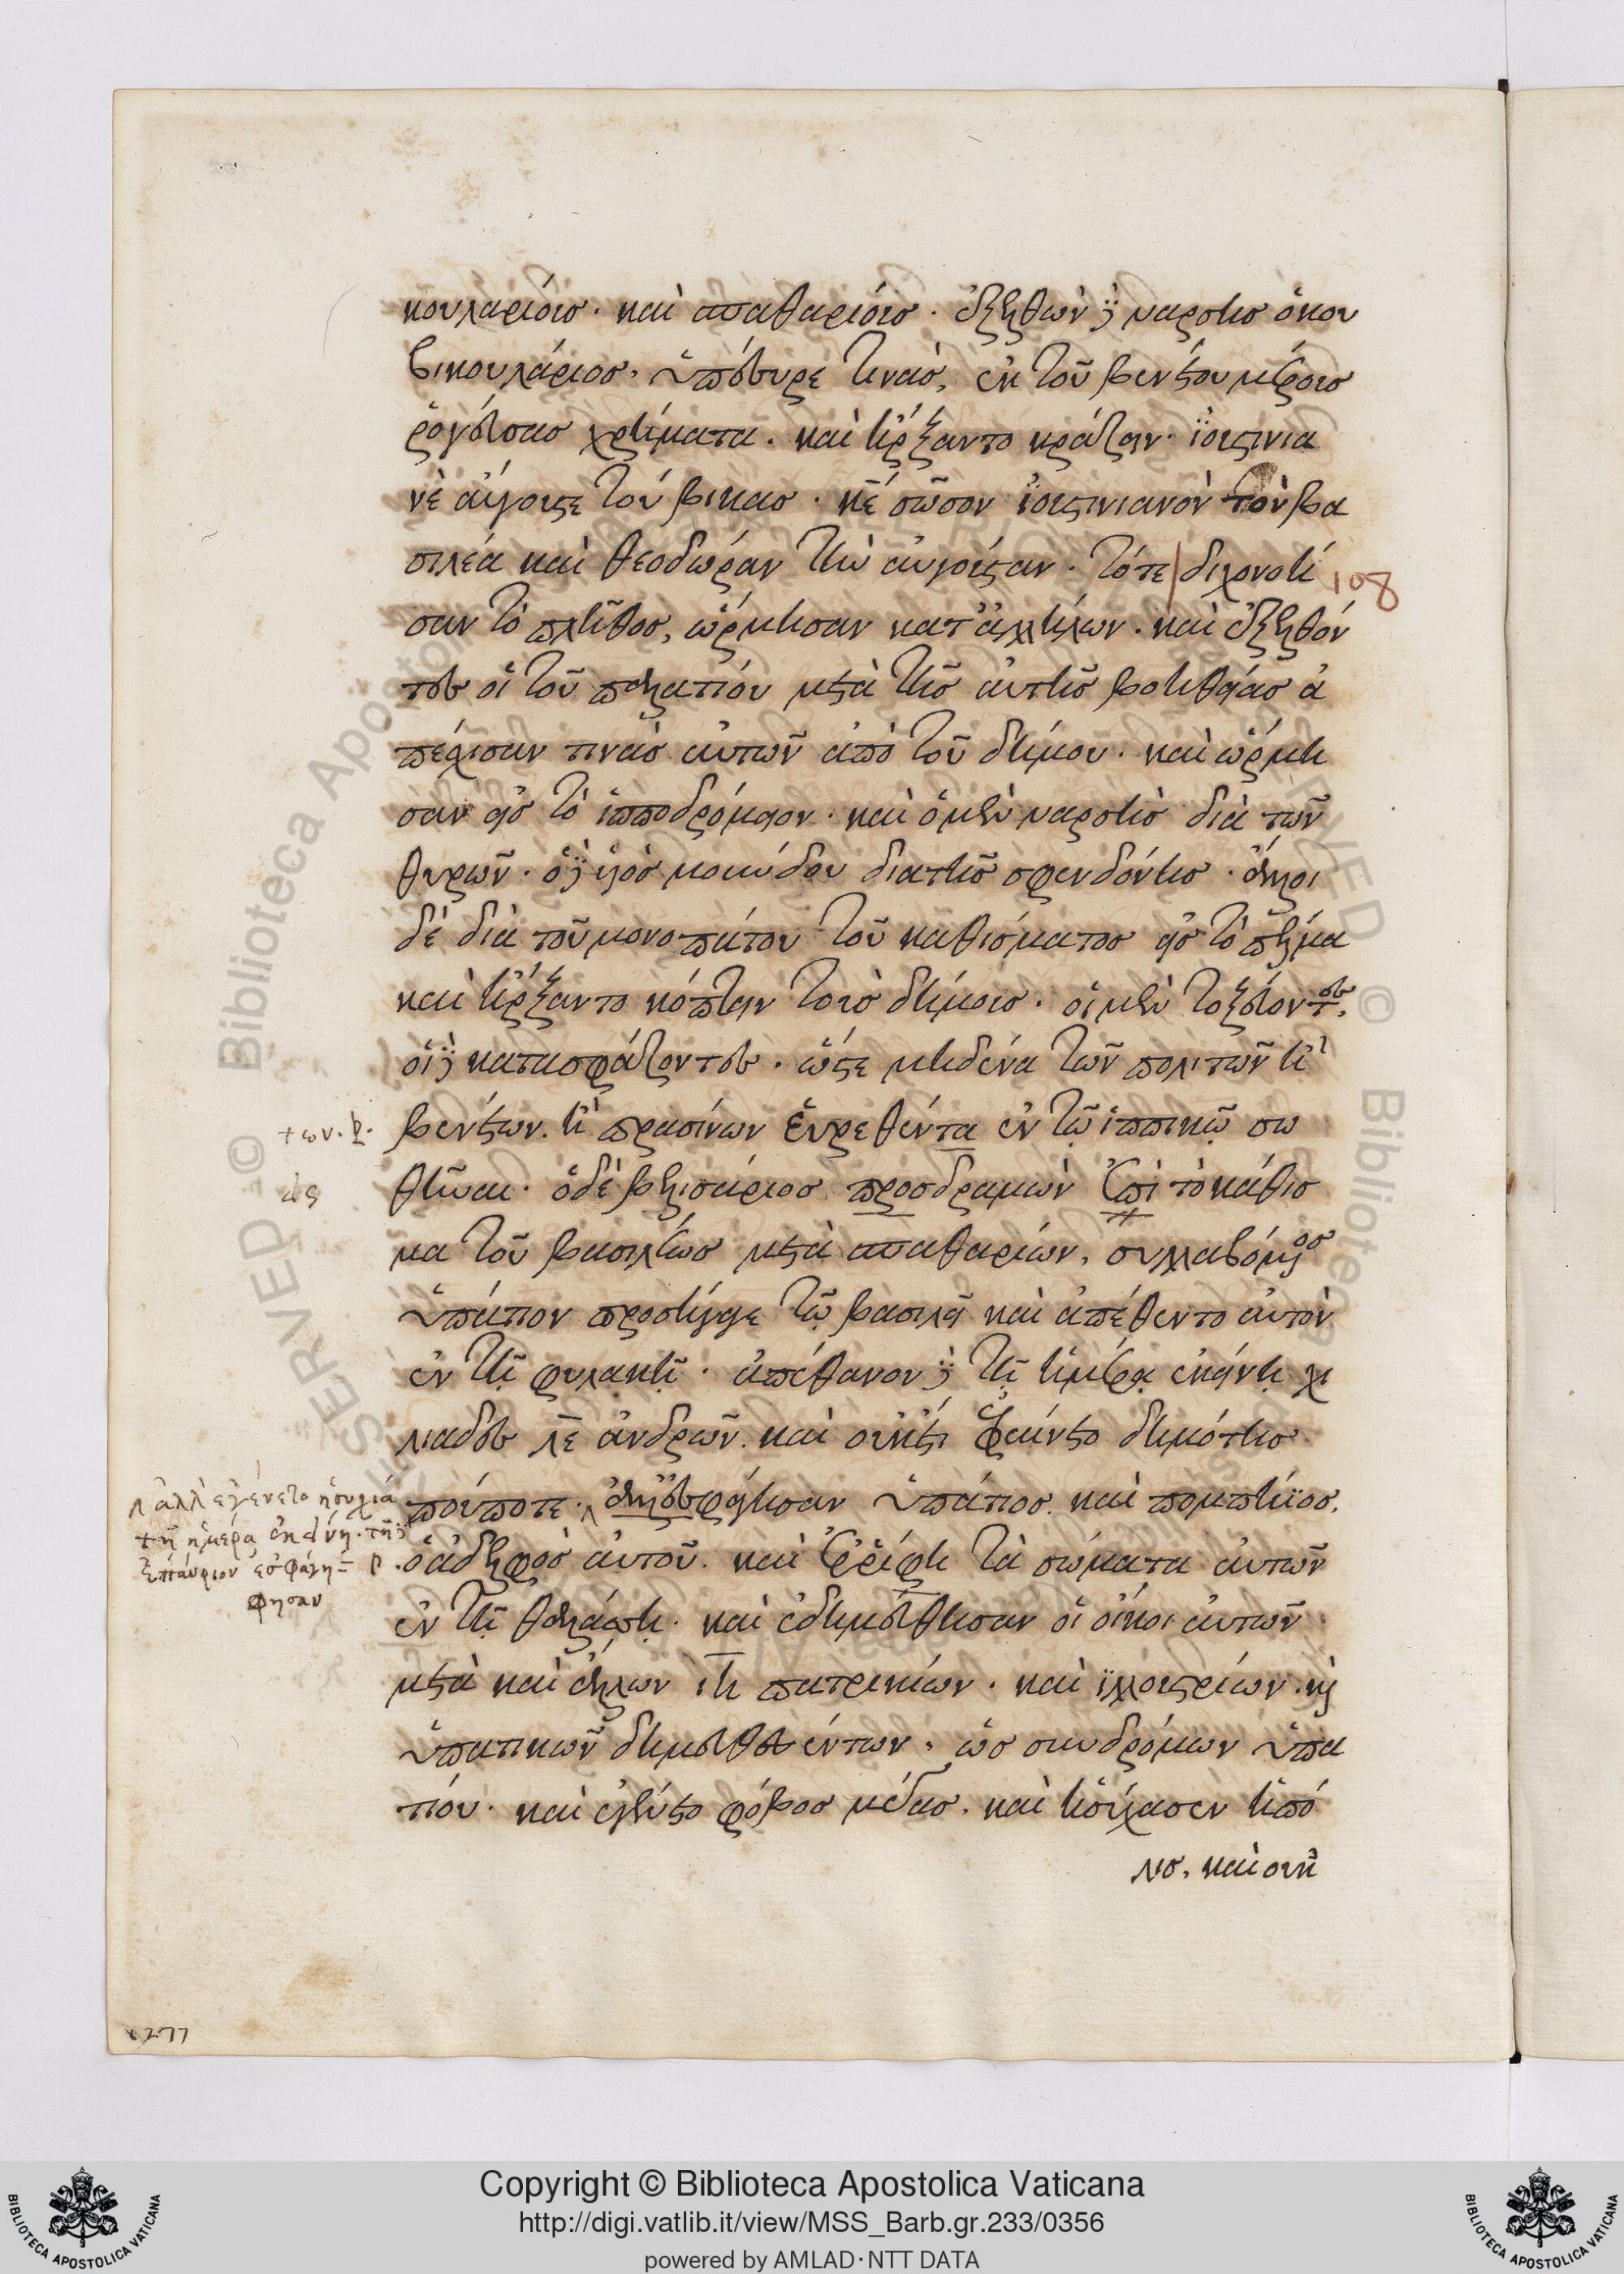 κουλαρίοις. καὶ σπαθαρίοις. ἐξελθὼν δὲ ναρσῆς ὁ κου
βικουλάριος, ὑπέσυρε τινὰς, ἐκ τοῦ βενέτου μέρους
ρογεύσας χρήματα. καὶ ἤρξαντο κράζειν. ϊουστινια
νὲ αὔγουστε τού βικας. κε σῶσον ϊουστινιανὸν τὸν βα
σιλέα καὶ θεοδώραν τὴν αὐγούσταν. τότε διχονοή 108
σαν τὸ πλῆθος, ὥρμησαν κατ' ἀλλήλων. καὶ ἐξελθόν
τες οἱ τοῦ παλατίου μετὰ τῆς αὐτῆς βοηθείας ἀ
πέχισαν τινὰς αὐτῶν ἀπὸ τοῦ δήμου. καὶ ὥρμη
σαν εἰς τὸ ἱπποδρόμειον. καὶ ὁ μὲν ναρσὴς διὰ τῶν
θυρῶν. ὁ δὲ υἱὸς μούνδου διατῆς σφενδόνης. ἄλλοι
δὲ διὰ τοῦ μονοπάτου τοῦ καθίσματος εἰς τὸ πέλμα
καὶ ἤρξαντο κόπτειν τοὺς δήμους. οἱ μὲν τοξεύοντες,
οἱ δὲ κατασφάζοντες. ὥστε μηδένα τῶν πολιτῶν ἢ
των. β. βενέτων. ἢ πρασίνων εὑρεθέντα ἐν τῷ ἱππικῷ σω
θῆναι. ὁ δὲ βελισάριος προσδραμὼν ἐπὶ τὸ κάθισ
μα τοῦ βασιλέως μετὰ σπαθαρίων, συλλαβόμενος
ὑπάτιον προσήγαγε τῷ βασιλεῖ καὶ ἀπέθεντο αὐτὸν
ἐν τῇ φυλακῇ. ἀπέθανον δὲ τῇ ἡμέρᾳ ἐκείνῃ χι
λιαδες λε ἀνδρῶν. καὶ οὐκέτι ἐφαίνετο δημότης
πούποτε. ὑπάτιος. καὶ πομπήϊος,
ἀλλ' ἐγένετο ἡσυχία
τῇ ἡμέρᾳ ἐκείνη. τῇ δὲ
ἐπαύριον ἐσφάγη=
φησαν
ὁ ἀδελφὸς αὐτοῦ. καὶ ἐρρίφη τὰ σώματα αὐτῶν
ἐν τῇ θαλάσσῃ. καὶ ἐδημεύθησαν οἱ οἶκοι αὐτῶν
μετὰ καὶ ἄλλων ιη πατρικίων. καὶ ϊλλουστρίων. καὶ
ὑπατικῶν δημευθέντων. ὡς συνδρόμων ὑπα
τίου. καὶ ἐγένετο φόβος μέγας. καὶ ἡσύχασεν ἡ πό
λις. καὶ οὐκ
277
Copyright © Biblioteca Apostolica Vaticana
http://digi.vatlib.it/view/MSS_Barb.gr.233/0356
powered by AMLAD·NTT DATA
BIBLIOTECA APOSTOLICA VATICANA
BIBLIOTECA APOSTOLICA VATICANA